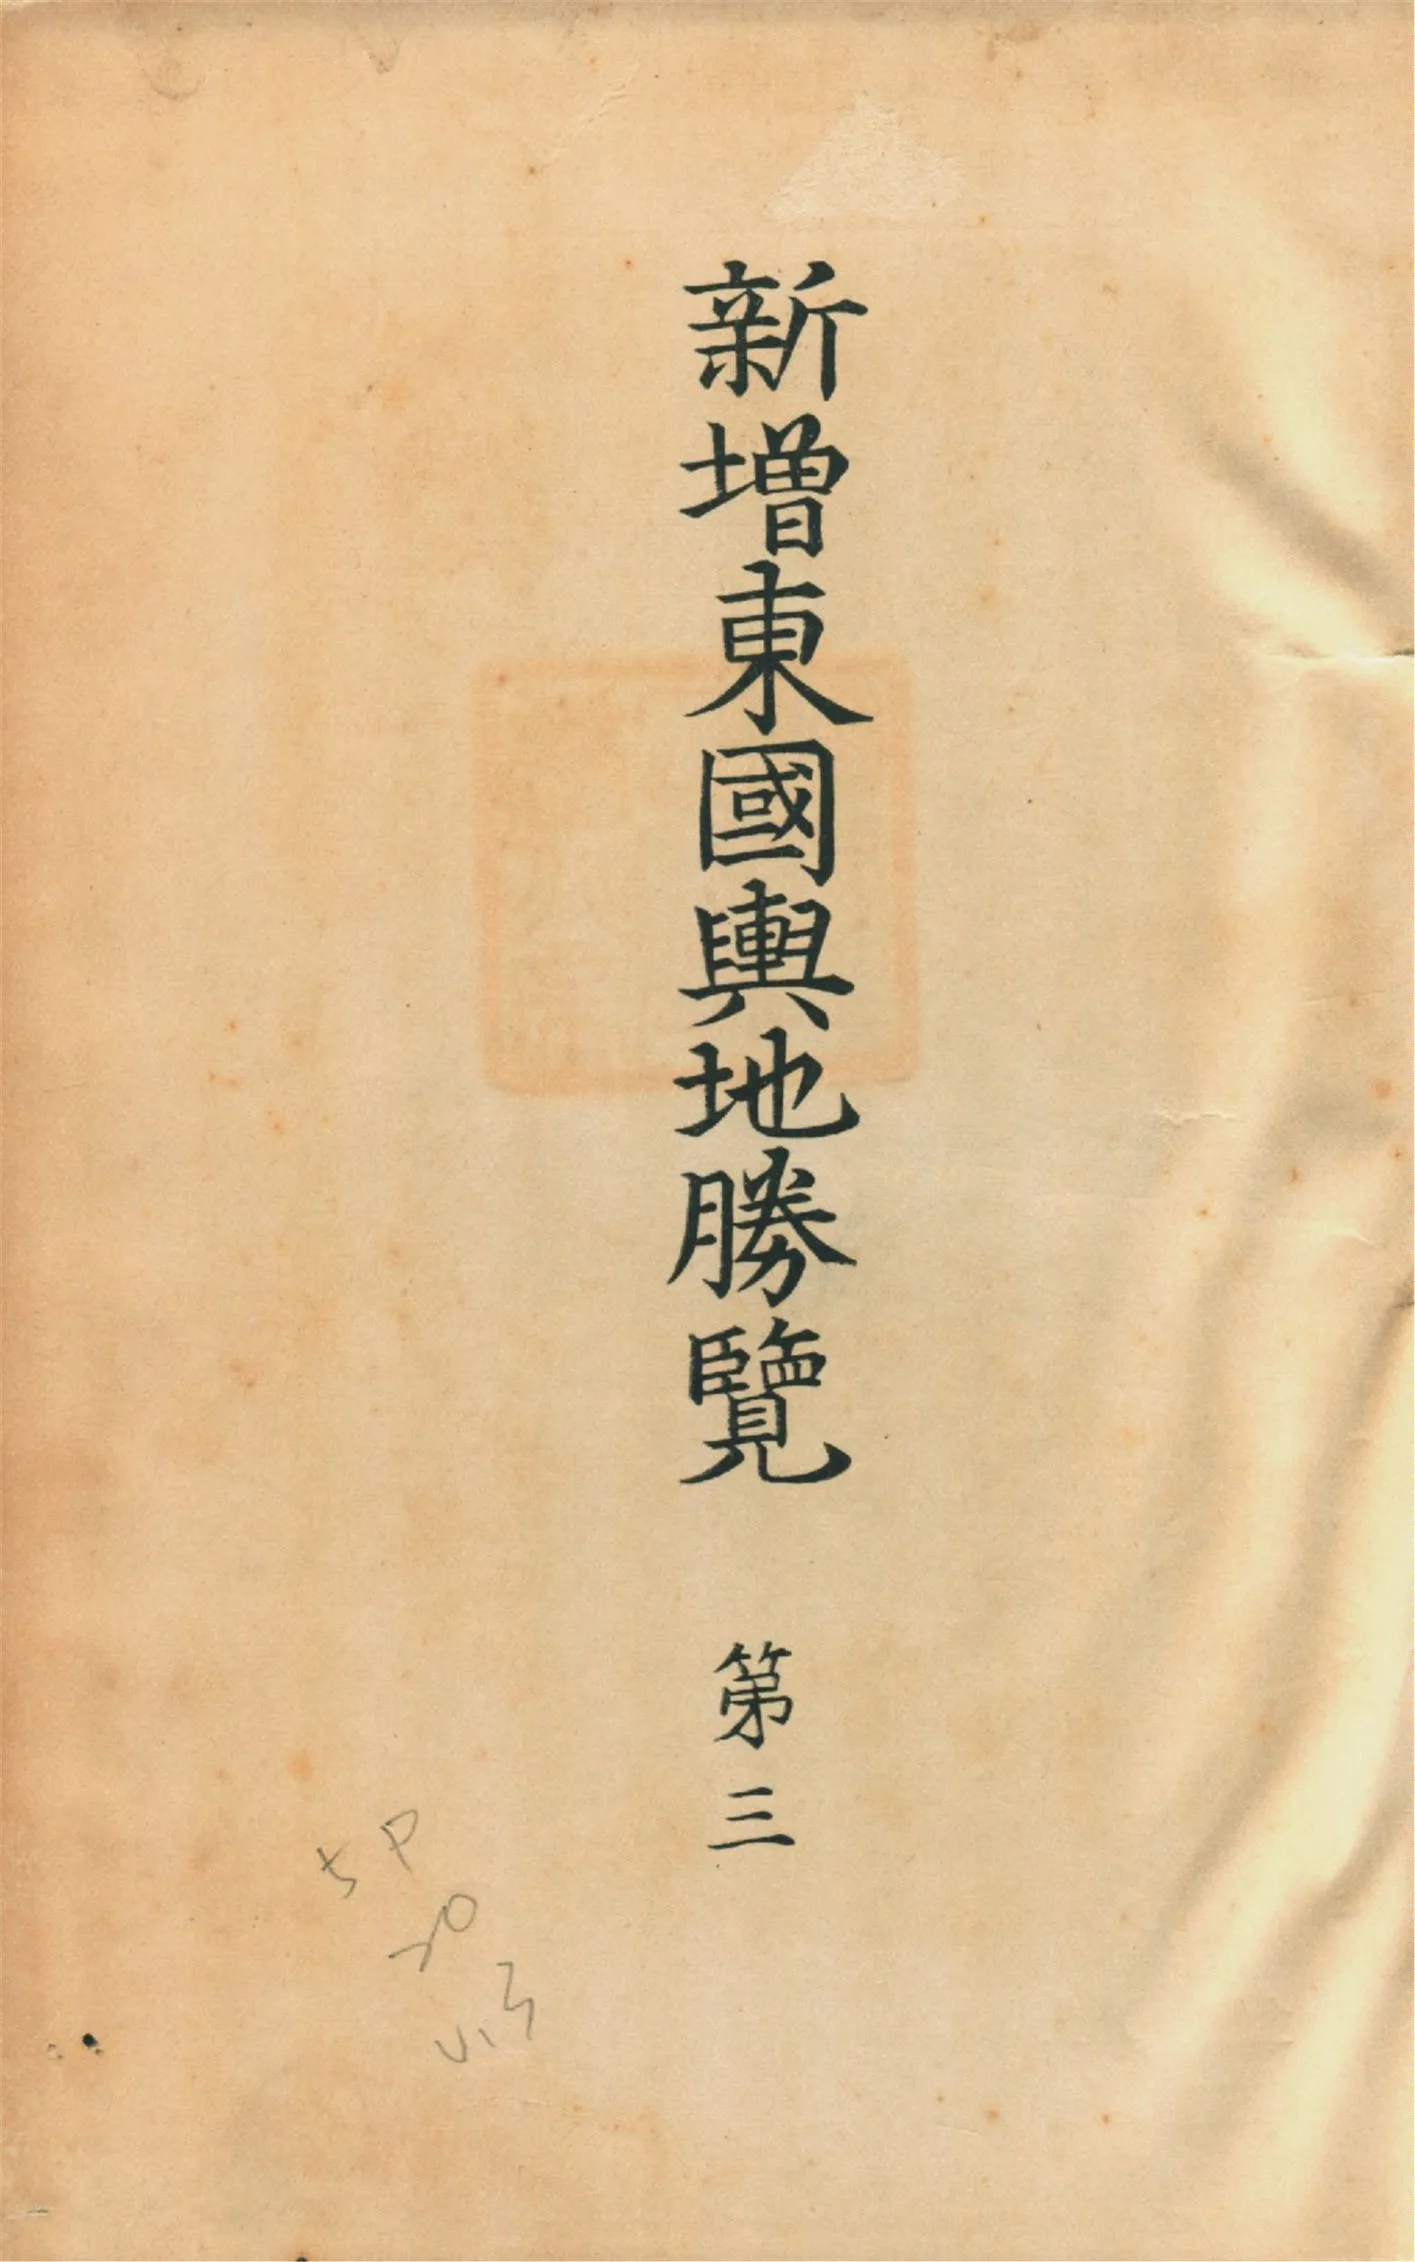 新增東國輿地勝覽 第三
5P
20
V.3